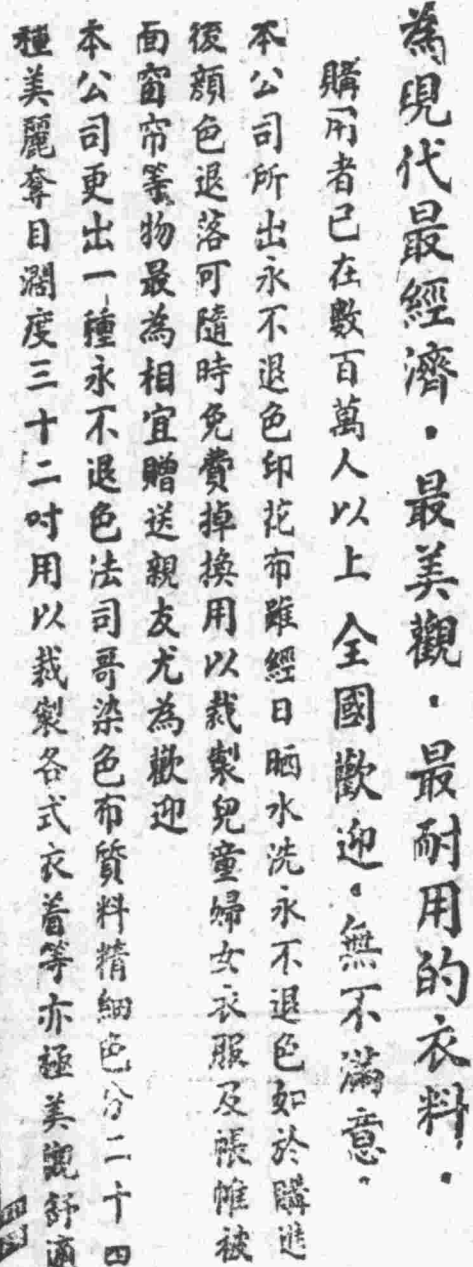 為現代最經濟．最美觀．最耐用的衣料．
購用者已在數百萬人以上全國歡迎。無不滿意。
本公司所出永不退色印花布雖經日晒水洗永不退色如於購進
後顏色退落可隨時免費掉換用以裁製兒童婦女衣服及帳帷被
面窗帘等物最為相宜贈送親友尤為歡迎
本公司更出一種永不退色法司哥染色布質料精細色分二十四
種美麗奪目濶度三十二吋用以裁製各式衣着等亦極美觀舒適